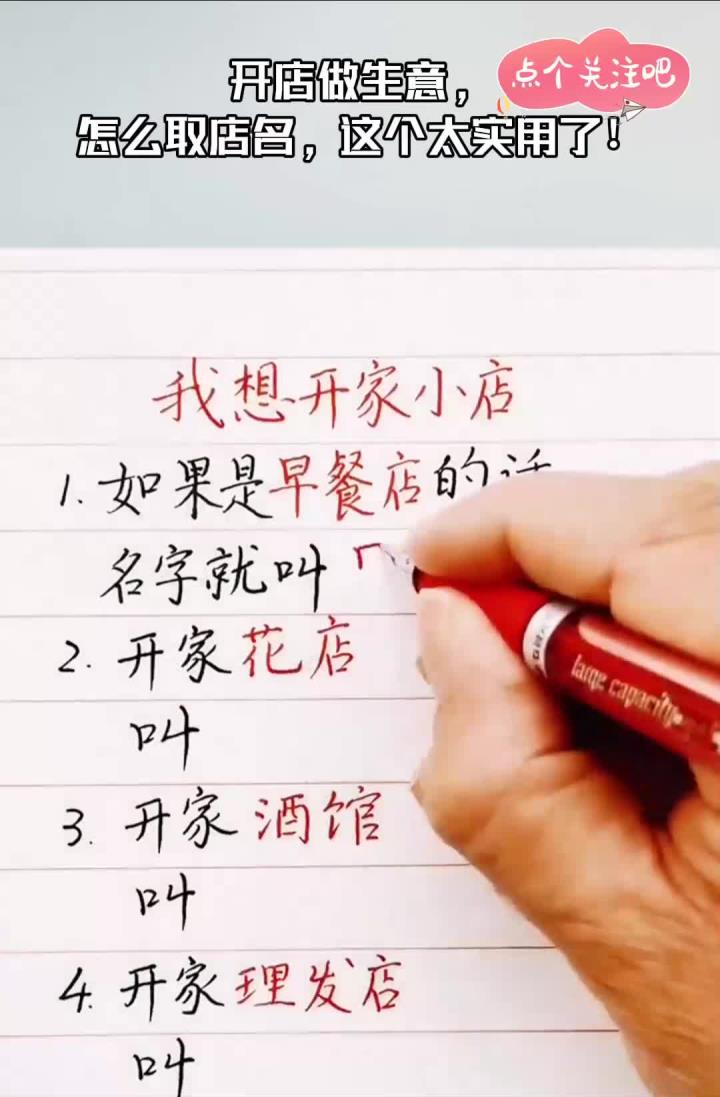 开店做生意,
点个关注吧
怎么取店名,这个太实用了!
我想开家小店
1. 如果是早餐店的话
名字就叫「
large capacity
2. 开家花店
叫
3. 开家酒馆
叫
4. 开家理发店
叫